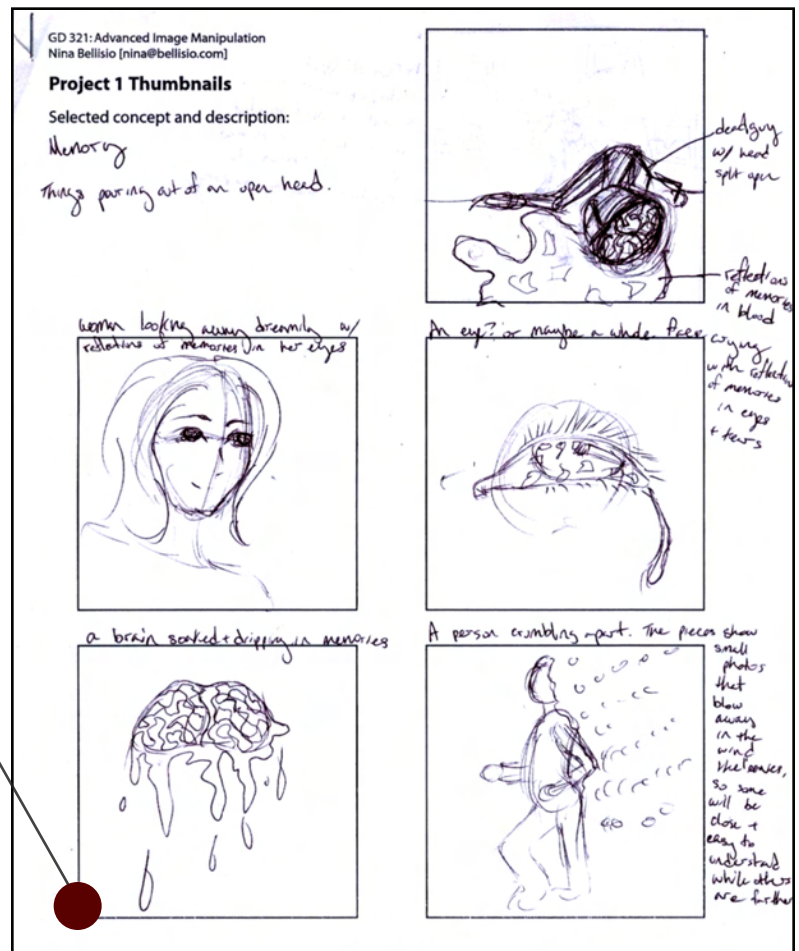 GD 321: Advanced Image Manipulation
Nina Bellisio [nina@bellisio.com]
Project 1 Thumbnails
Selected concept and description:
Memory
Things pouring out of an open head.
dead guy
w/ head
split open
reflections
of memories
in blood
woman looking away dreamily w/
reflations of memories in her eyes
An eye? or maybe a whole face crying
with reflection
of memories
in eyes
+ tears
a brain soaked + dripping in memories
A person crumbling apart. The pieces show
small
photos
that
blow
away
in the
wind
so some
will be
close +
easy to
understand
while others
are farther